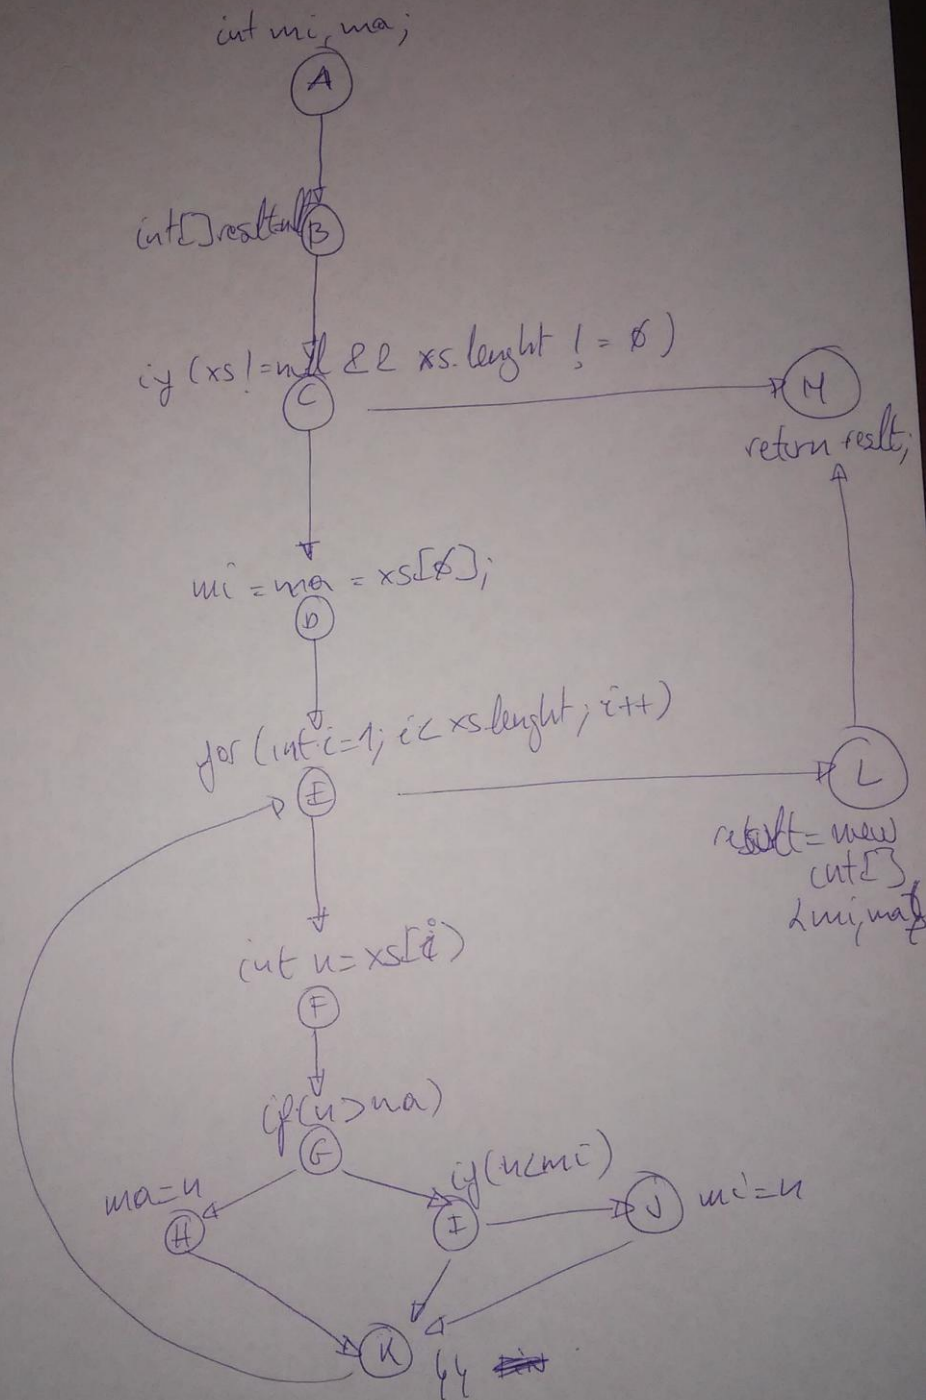 int mi, ma;
A
int[] result=null
B
if (xs!=null && xs.lenght != 0)
C
M
return reslt;
mi = ma = xs[0];
D
for (int i=1; i< xs.lenght; i++)
E
L
result= new
int[]
{mi,ma}
int n= xs[i)
F
if(n>ma)
G
if(n<mi)
ma=n
H
I
J
mi=n
K
}}